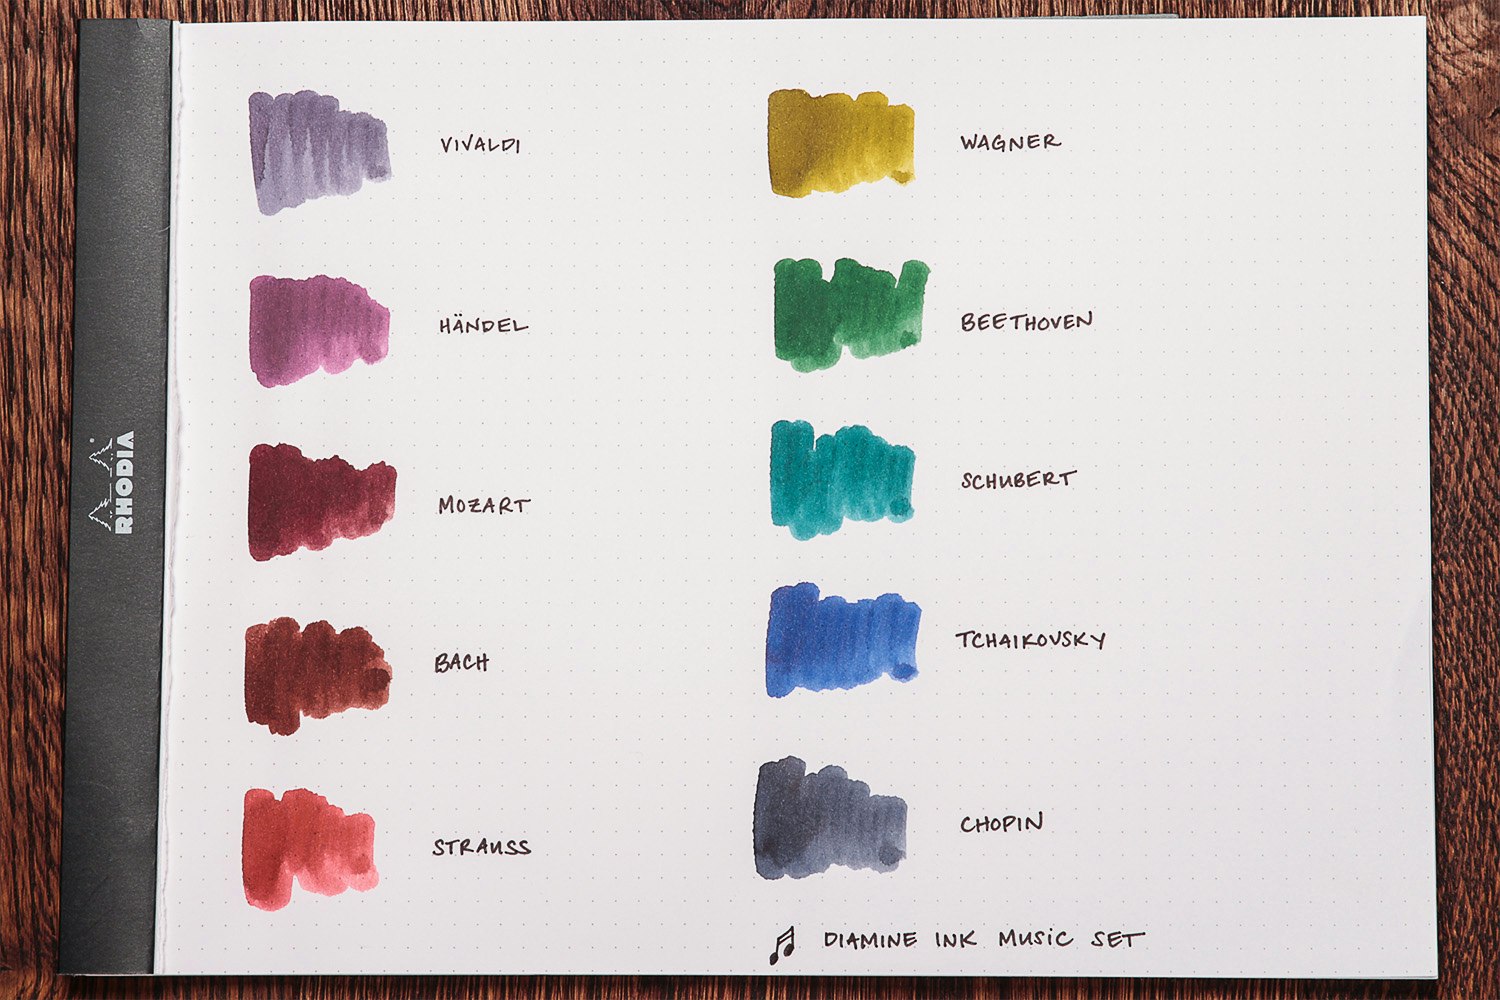 VIVALDI
HÄNDEL
MOZART
BACH
STRAUSS
WAGNER
BEETHOVEN
SCHUBERT
TCHAIKOVSKY
CHOPIN
DIAMINE INK MUSIC SET
RHODIA